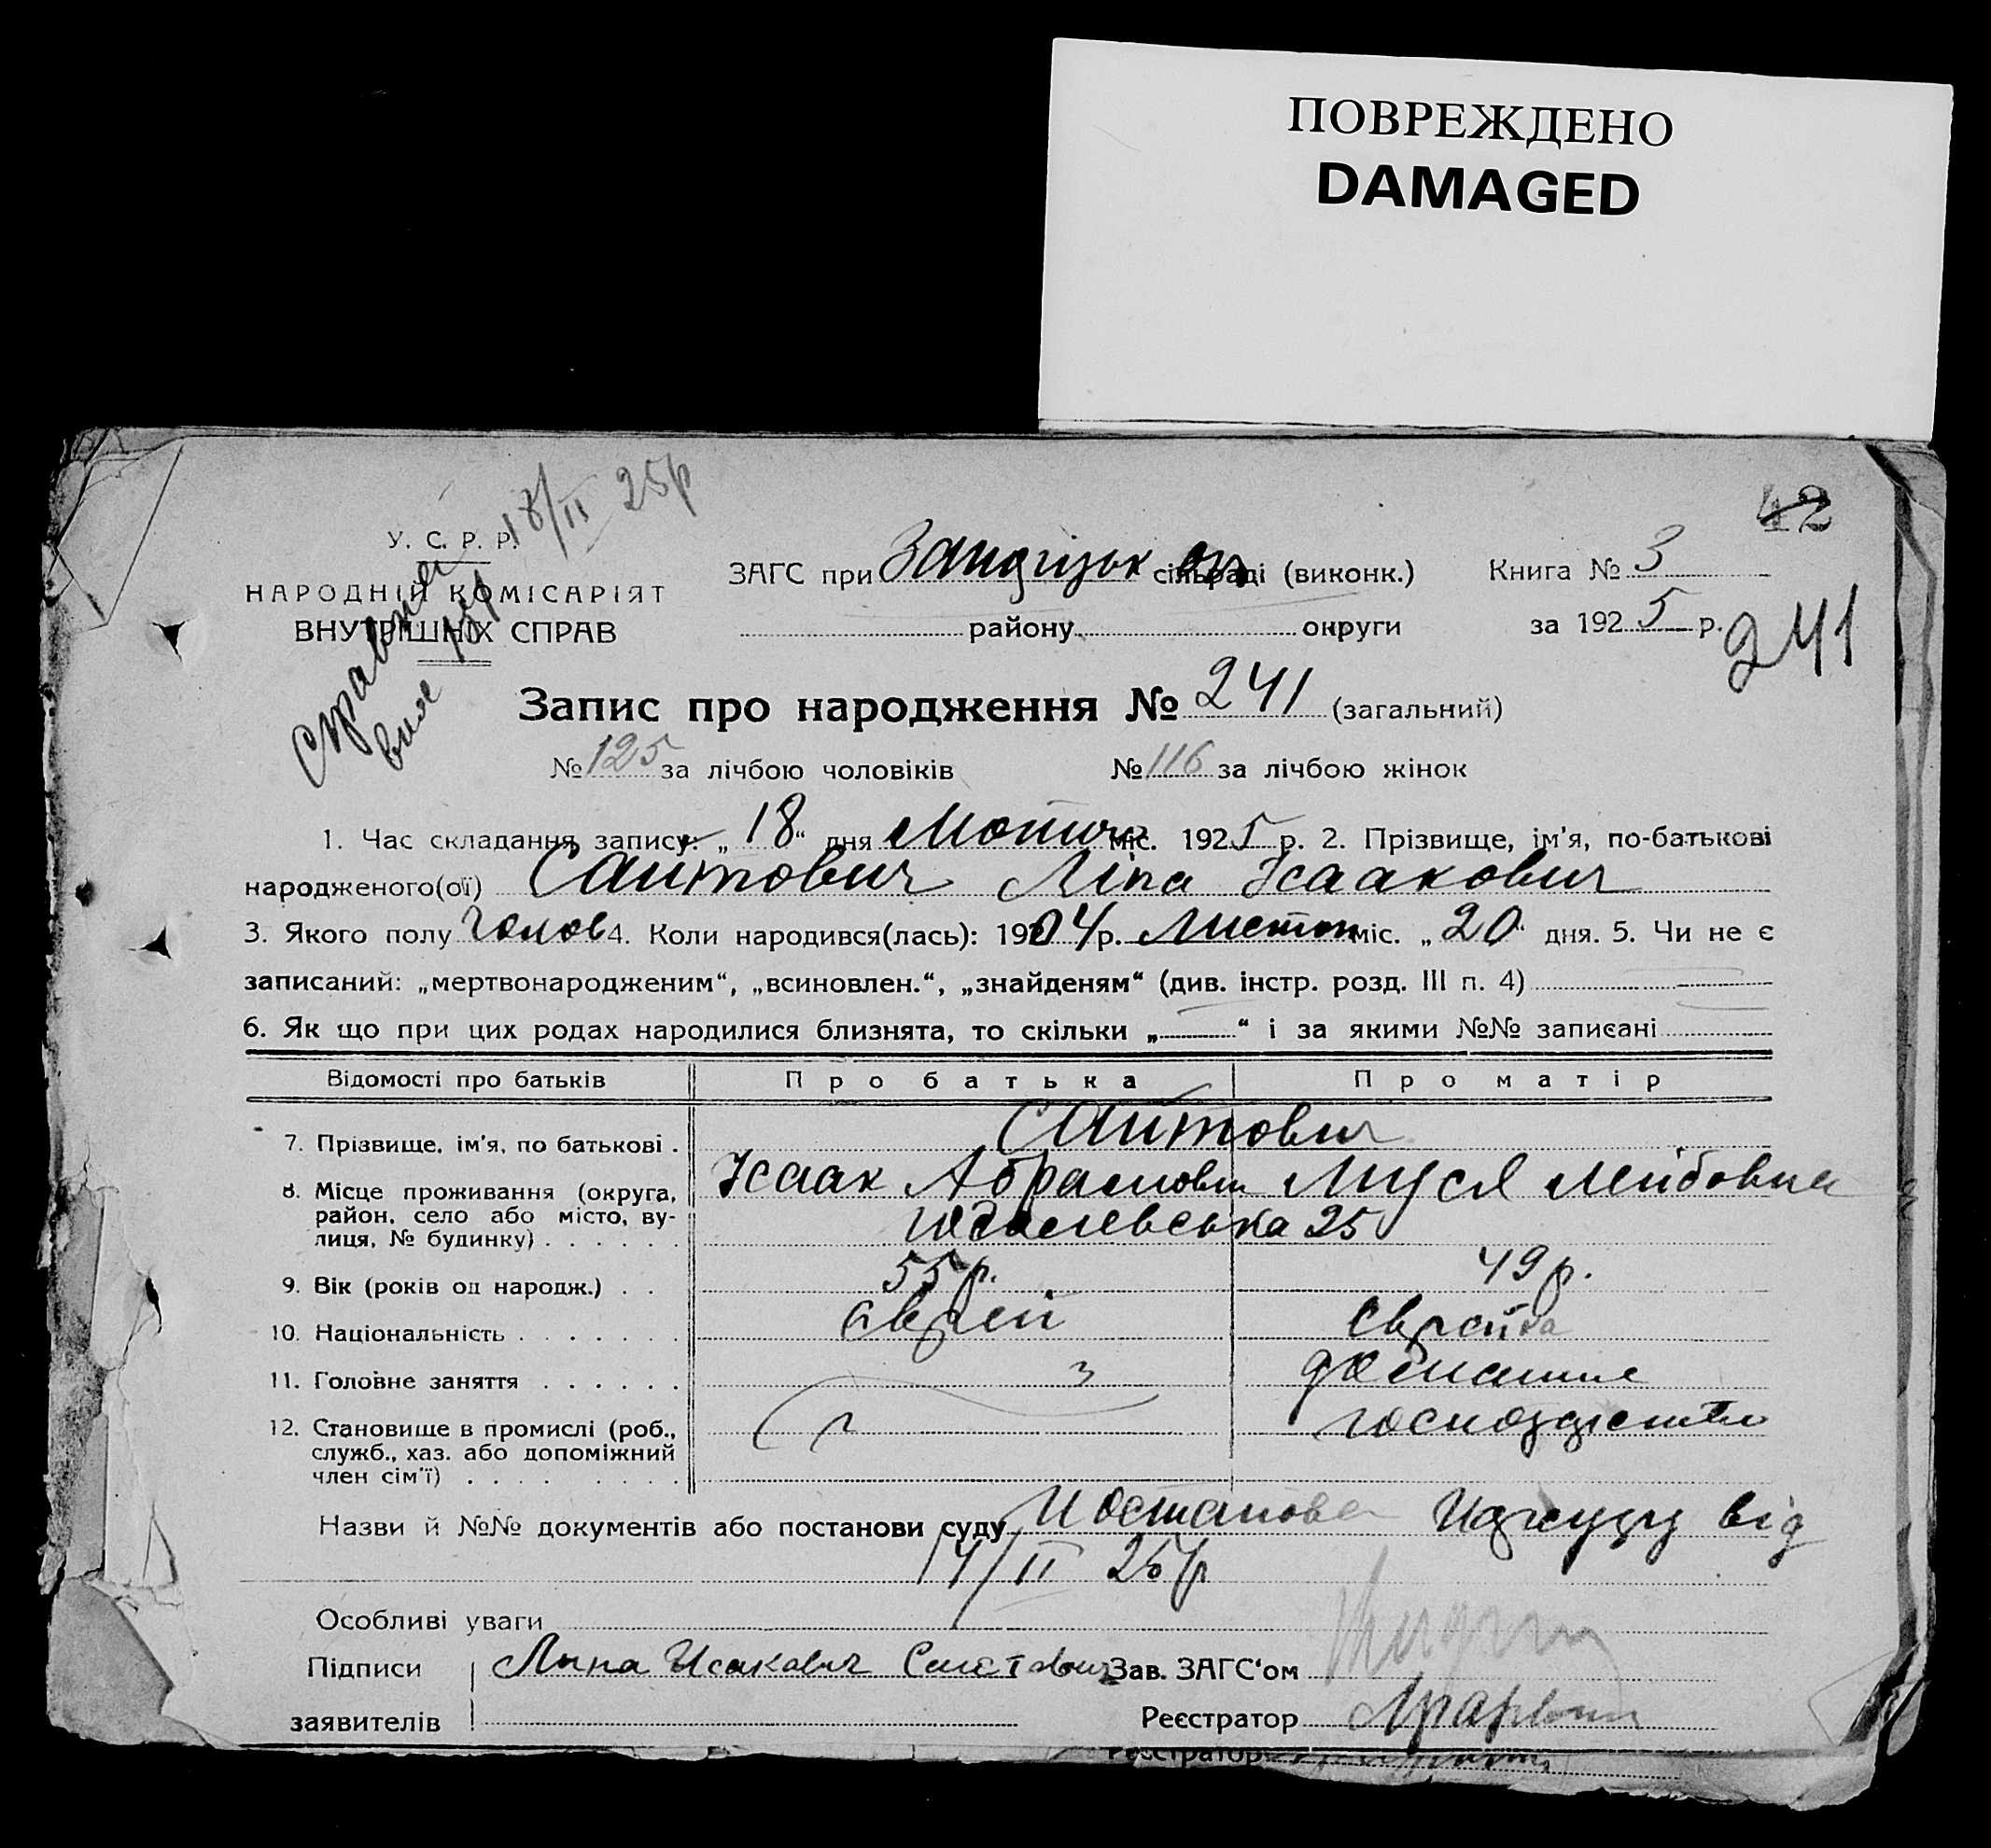 ПОВРЕЖДЕНО
DAMAGED
42
18/II 25р
У. С. Р. Р.
НАРОДНІЙ КОМІСАРІЯТ
ВНУТРІШНІХ СПРАВ
ЗАГС при сільраді (виконк.)
району округи
Книга № 3
за 1925 р.
241
Запис про народження № 241 (загальний)
№ 125 за лічбою чоловіків № 116 за лічбою жінок
1. Час складання запису: „ 18 “ дня Лютого міс. 1925 р. 2. Прізвище, ім'я, по-батькові
народженого(ої) Саитович Ліпа Ісаакович
3. Якого полу чолов 4. Коли народився(лась): 1904 р. Листоп міс. „ 20 “ дня. 5. Чи не є
записаний: „мертвонародженим“, „всиновлен.“, „знайденям“ (див. інстр. розд. III п. 4)
6. Як що при цих родах народилися близнята, то скільки „ “ і за якими №№ записані
Відомості про батьків Про батька Про матір
7. Прізвище, ім'я, по батькові . Саитович
Ісаак Абрамович Муся Лейбовна
8. Місце проживання (округа,
район, село або місто, ву-
лиця, № будинку) . . . . . . 25
9. Вік (років од народж.) . . 55р. 49р.
10. Національність . . . . . . . єврей єврейка
11. Головне заняття . . . . . . домашнє
12. Становище в промислі (роб.,
служб., хаз. або допоміжний
член сім'ї) . . . . . . . . .
Назви й №№ документів або постанови суду Постанова Нарсуду від
14/II 25р
Особливі уваги
Підписи Липа Исакович Саетович Зав. ЗАГС'ом
заявителів Реєстратор
Реєстратор